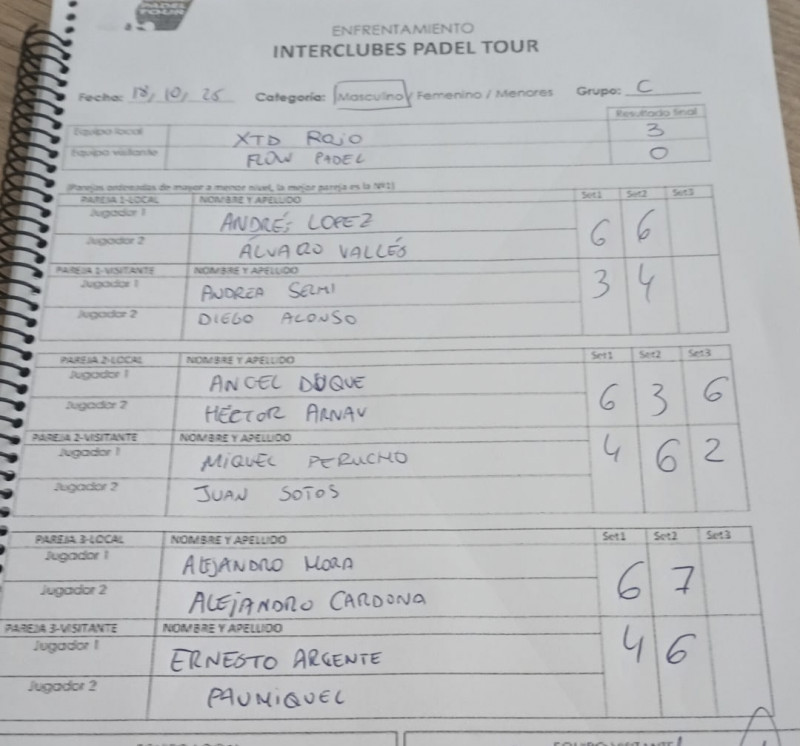 PADEL
TOUR
ENFRENTAMIENTO
INTERCLUBES PADEL TOUR
Fecha: 18/10/25 Categoria: Masculino / Femenino / Menores Grupo: C
Resultado final
Equipo local XTD ROJO 3
Equipo visitante FLOW PADEL 0
(Parejas ordenadas de mayor a menor nivel, la mejor pareja es la Nº1)
PAREJA 1-LOCAL NOMBRE Y APELLIDO Set1 Set2 Set3
Jugador 1 ANDRÉS LOPEZ
Jugador 2 ÁLVARO VALLÉS 6 6
PAREJA 1-VISITANTE NOMBRE Y APELLIDO
Jugador 1 ANDREA SELMI 3 4
Jugador 2 DIEGO ALONSO
PAREJA 2-LOCAL NOMBRE Y APELLIDO Set1 Set2 Set3
Jugador 1 ANGEL DUQUE
Jugador 2 HÉCTOR ARNAU 6 3 6
PAREJA 2-VISITANTE NOMBRE Y APELLIDO
Jugador 1 MIQUEL PERUCHO 4 6 2
Jugador 2 JUAN SOTOS
PAREJA 3-LOCAL NOMBRE Y APELLIDO Set1 Set2 Set3
Jugador 1 ALEJANDRO MORA
Jugador 2 ALEJANDRO CARDONA 6 7
PAREJA 3-VISITANTE NOMBRE Y APELLIDO
Jugador 1 ERNESTO ARGENTE 4 6
Jugador 2 PAU MIQUEL